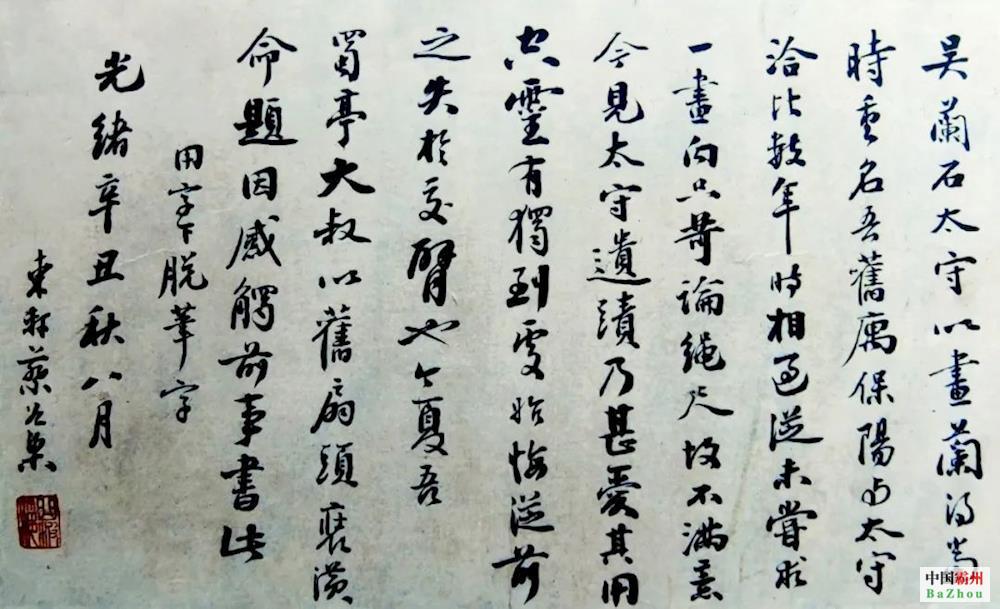 吴蘭石太守以畫蘭得当
時重名吾舊寓保陽与太守
洽比数年時相過從未嘗求
一畫向只苛論繩尺故不滿意
今見太守遺蹟乃甚愛其用
空靈有獨到處始悔從前
之失於交臂也今夏吾
蜀亭大叔以舊扇頭裱潢
命題因感觸前事書此
用字下脱筆字
光緒辛丑秋八月
東軒蔡
中国霸州
BaZhou